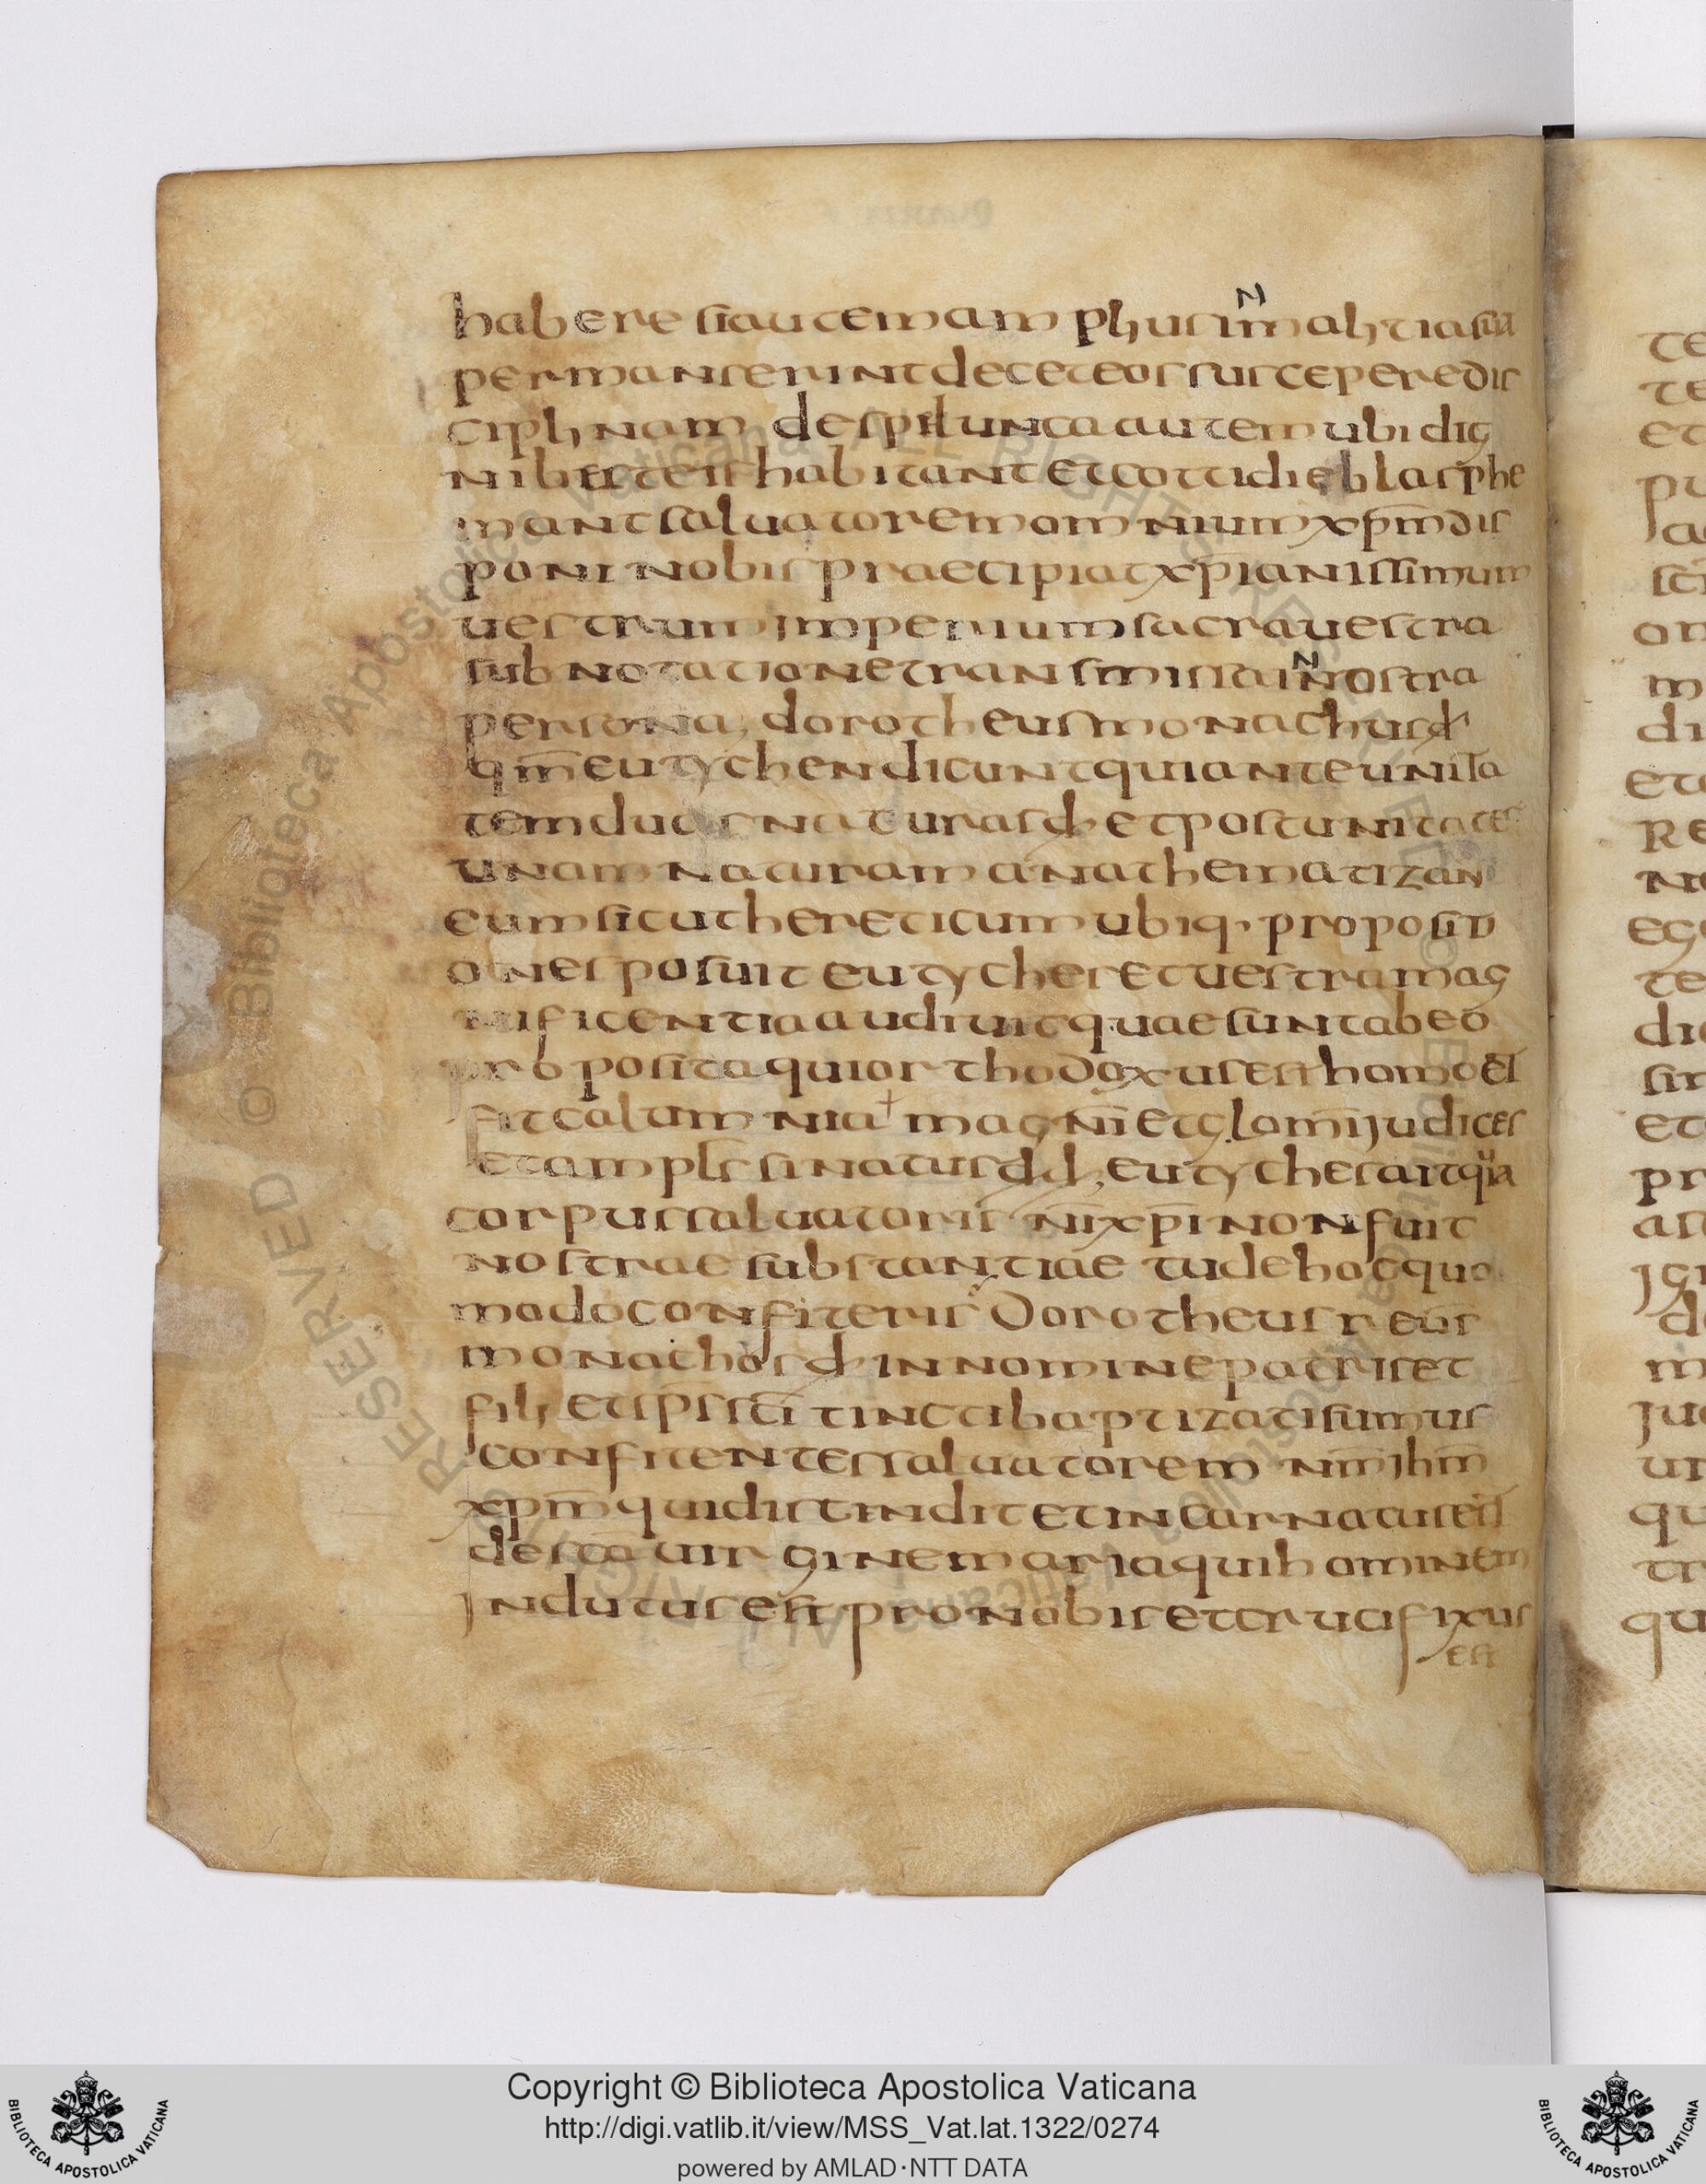 habere si autem amplius in malitia sua
permanserint decet eos suscepere dis
ciplinam, despilunca autem ubi dig
ni bestiis habitant et cottidie blasphe
mant saluatorem omnium xp̄m dis
poni nobis praecipiat xp̄ianissimum
uestrum imperium sacra uestra
subnotatione transmissa in nostra
persona, dorotheus monachus đ
qm̄ eutychen dicunt quia ante unita
tem duas naturas đ et post unitatem
unam naturam anathematizan
eum sicut hereticum ubiq· proposito
ones posuit eutyches et uestra mag
nificentia audiuit quae sunt ab eo
proposita qui orthodoxus est homo et
fit calumnia magn̄i et glom̄ judices
et ampls sinatus dđ, eutyches ait quia
corpus saluatoris n̄i xp̄i non fuit
nostrae substantiae tu de hoc quo
modo confiteris Dorotheus reūs
monachos đ in nomine patris et
filii et sp̄s sc̄i tincti baptizati sumus
confitentes saluatorem nm̄ jhm̄
xp̄m qui discendit et incarnatus est
de sc̄a uirgine maria qui hominem
jndutus est pro nobis et crucifixus
est
Copyright © Biblioteca Apostolica Vaticana
http://digi.vatlib.it/view/MSS_Vat.lat.1322/0274
powered by AMLAD·NTT DATA
BIBLIOTECA APOSTOLICA VATICANA
BIBLIOTECA APOSTOLICA VATICANA